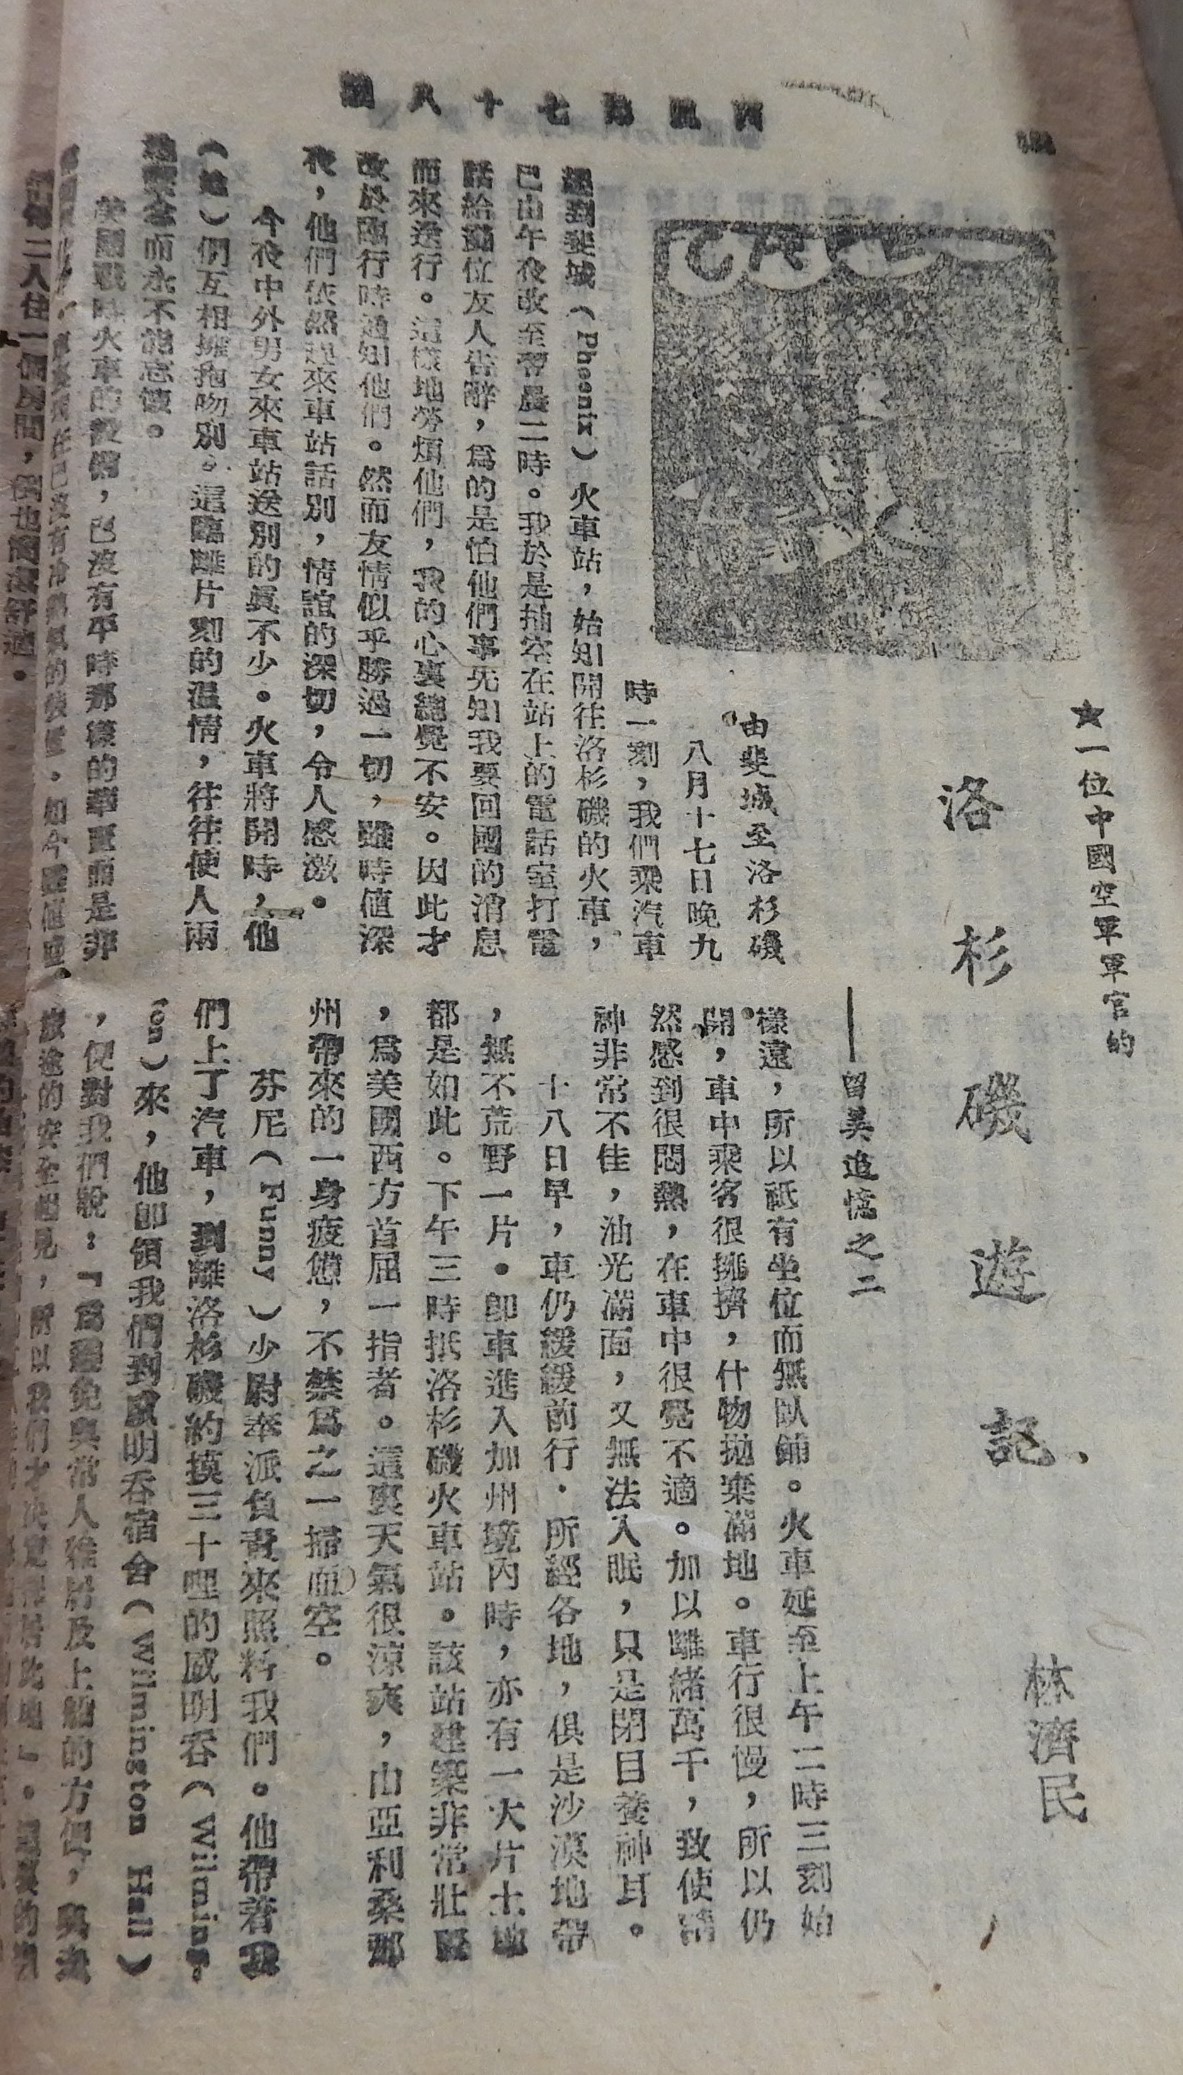 西風第七十八期
★一位中國空軍軍官的
洛杉磯遊記
林濟民
——留美追憶之二
CAFE
由斐城至洛杉磯
八月十七日晚九
時一刻，我們乘汽車
趕到斐城（Phoenix）火車站，始知開往洛杉磯的火車，
已由午夜改至翌晨二時。我於是抽空在站上的電話室打電
話給幾位友人告辭，為的是怕他們事先知我要回國的消息
而來送行。這樣地勞煩他們，我的心裏總覺不安。因此才
改於臨行時通知他們。然而友情似乎勝過一切，雖時值深
夜，他們依然趕來車站話別，情誼的深切，令人感激。
今夜中外男女來車站送別的眞不少。火車將開時，他
（她）們互相擁抱吻別。這臨離片刻的温情，往往使人兩
而永不能忘懷。
美國戰時火車的設備，已沒有平時那樣的華貴而是非
二人住一個房間，倒也簡潔舒適。
樣遠，所以祇有坐位而無臥鋪。火車延至上午二時三刻始
開，車中乘客很擁擠，什物拋棄滿地。車行很慢，所以仍
然感到很悶熱，在車中很覺不適。加以離緒萬千，致使精
神非常不佳，油光滿面，又無法入眠，只是閉目養神耳。
十八日早，車仍緩緩前行．所經各地，俱是沙漠地帶
，無不荒野一片。卽車進入加州境內時，亦有一大片土地
都是如此。下午三時抵洛杉磯火車站。該站建築非常壯麗
，為美國西方首屈一指者。這裏天氣很涼爽，由亞利桑那
州帶來的一身疲憊，不禁為之一掃而空。
芬尼（Funny）少尉奉派負責來照料我們。他帶着我
們上了汽車，到離洛杉磯約摸三十哩的威明吞（Wilming-
ton）來，他卽領我們到威明吞宿舍（Wilmington Hall）
，便對我們說：『為避免與常人雜居及上船的方便，與未
旅途的安全起見，所以我們才決定你居此地』。這裏的